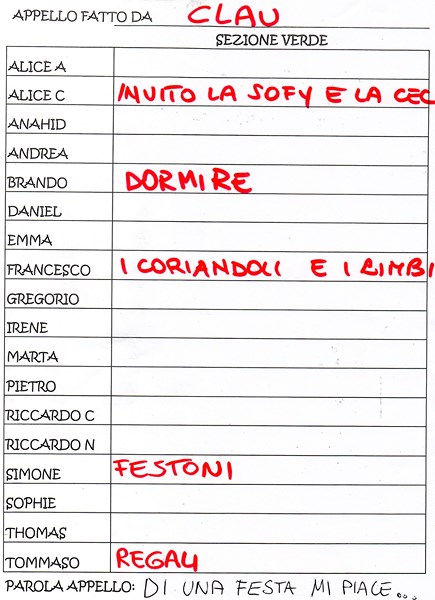 APPELLO FATTO DA CLAU
SEZIONE VERDE
ALICE A
ALICE C INVITO LA SOFY E LA CEC
ANAHID
ANDREA
BRANDO DORMIRE
DANIEL
EMMA
FRANCESCO I CORIANDOLI E I BIMBI
GREGORIO
IRENE
MARTA
PIETRO
RICCARDO C
RICCARDO N
SIMONE FESTONI
SOPHIE
THOMAS
TOMMASO REGALI
PAROLA APPELLO: DI UNA FESTA MI PIACE...